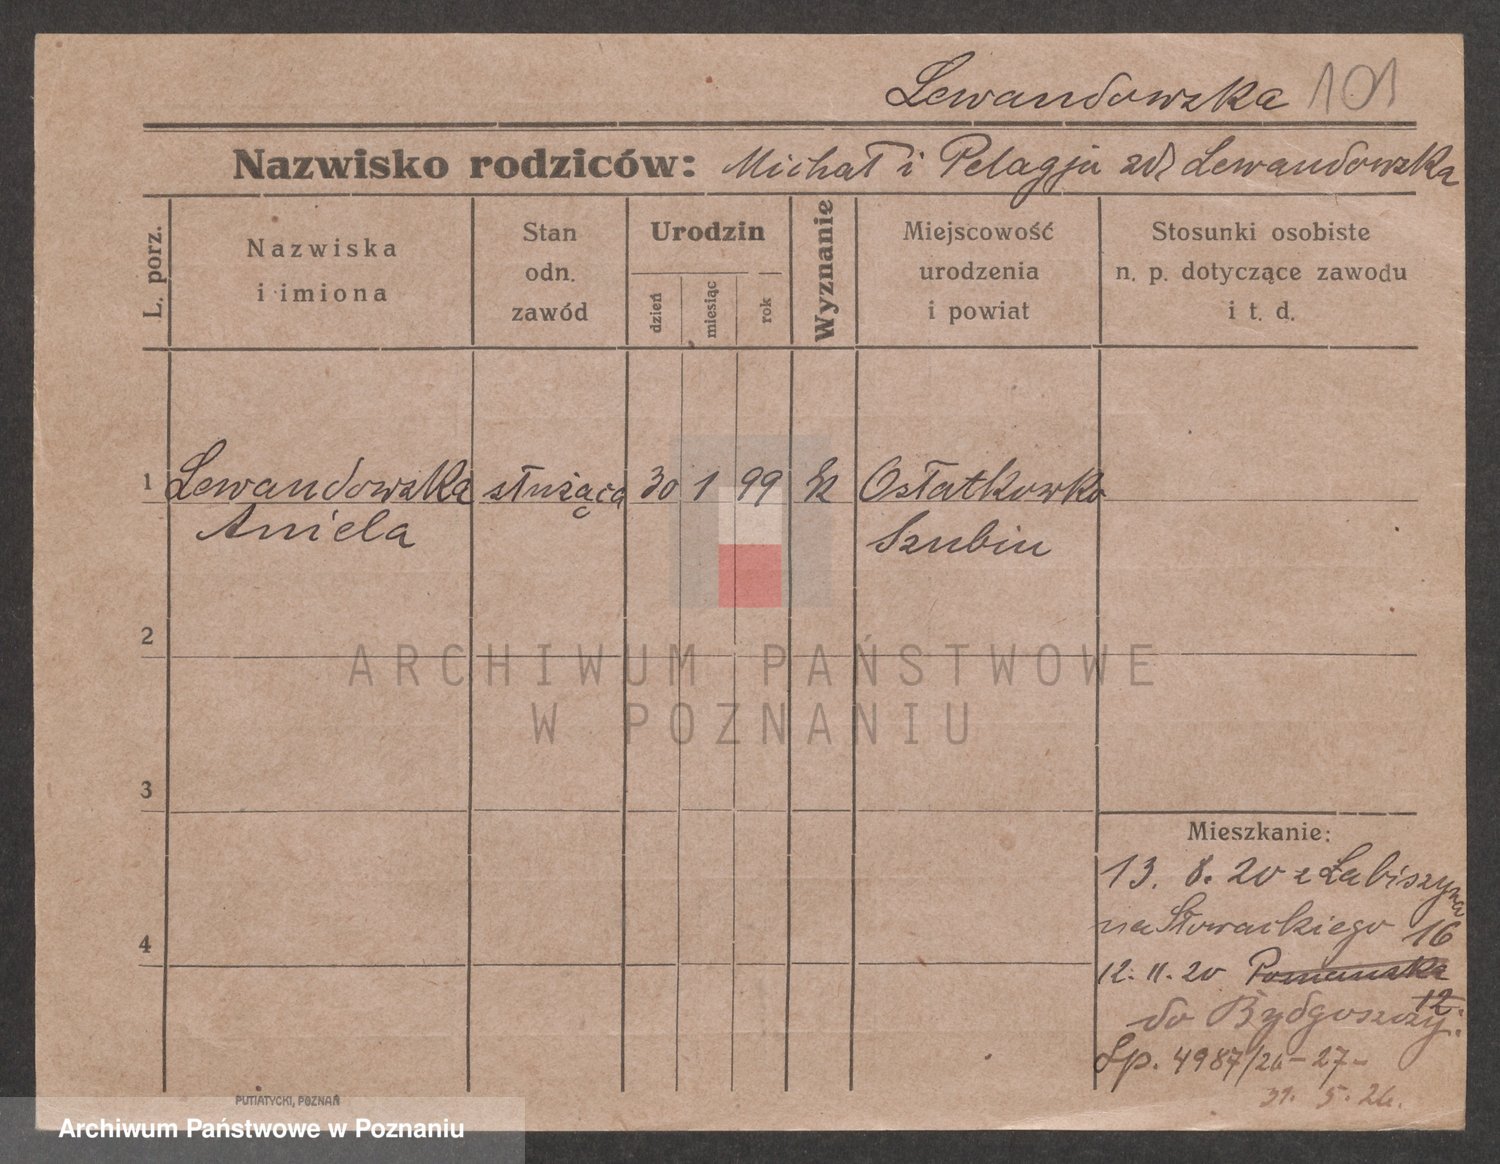 Lewandowska 101
Nazwisko rodziców: Michał i Pelagja zd Lewandowska
L. porz.
Nazwiska
i imiona
Stan
odn.
zawód
Urodzin
dzień
miesiąc
rok
Wyznanie
Miejscowość
urodzenia
i powiat
Stosunki osobiste
n. p. dotyczące zawodu
i t. d.
1 Lewandowska służąca 30 1 99 Ostatkowko
Aniela Szubin
2
ARCHIWUM PAŃSTWOWE
W POZNANIU
3
Mieszkanie:
13. 8. 20 z Łabiszyna
na Słowackiego 16
4
12. 11. 20 Poznańska
12.
do Bydgoszczy.
Lp. 4987/26-27-
31. 5. 26.
PUTIATYCKI, POZNAŃ
Archiwum Państwowe w Poznaniu